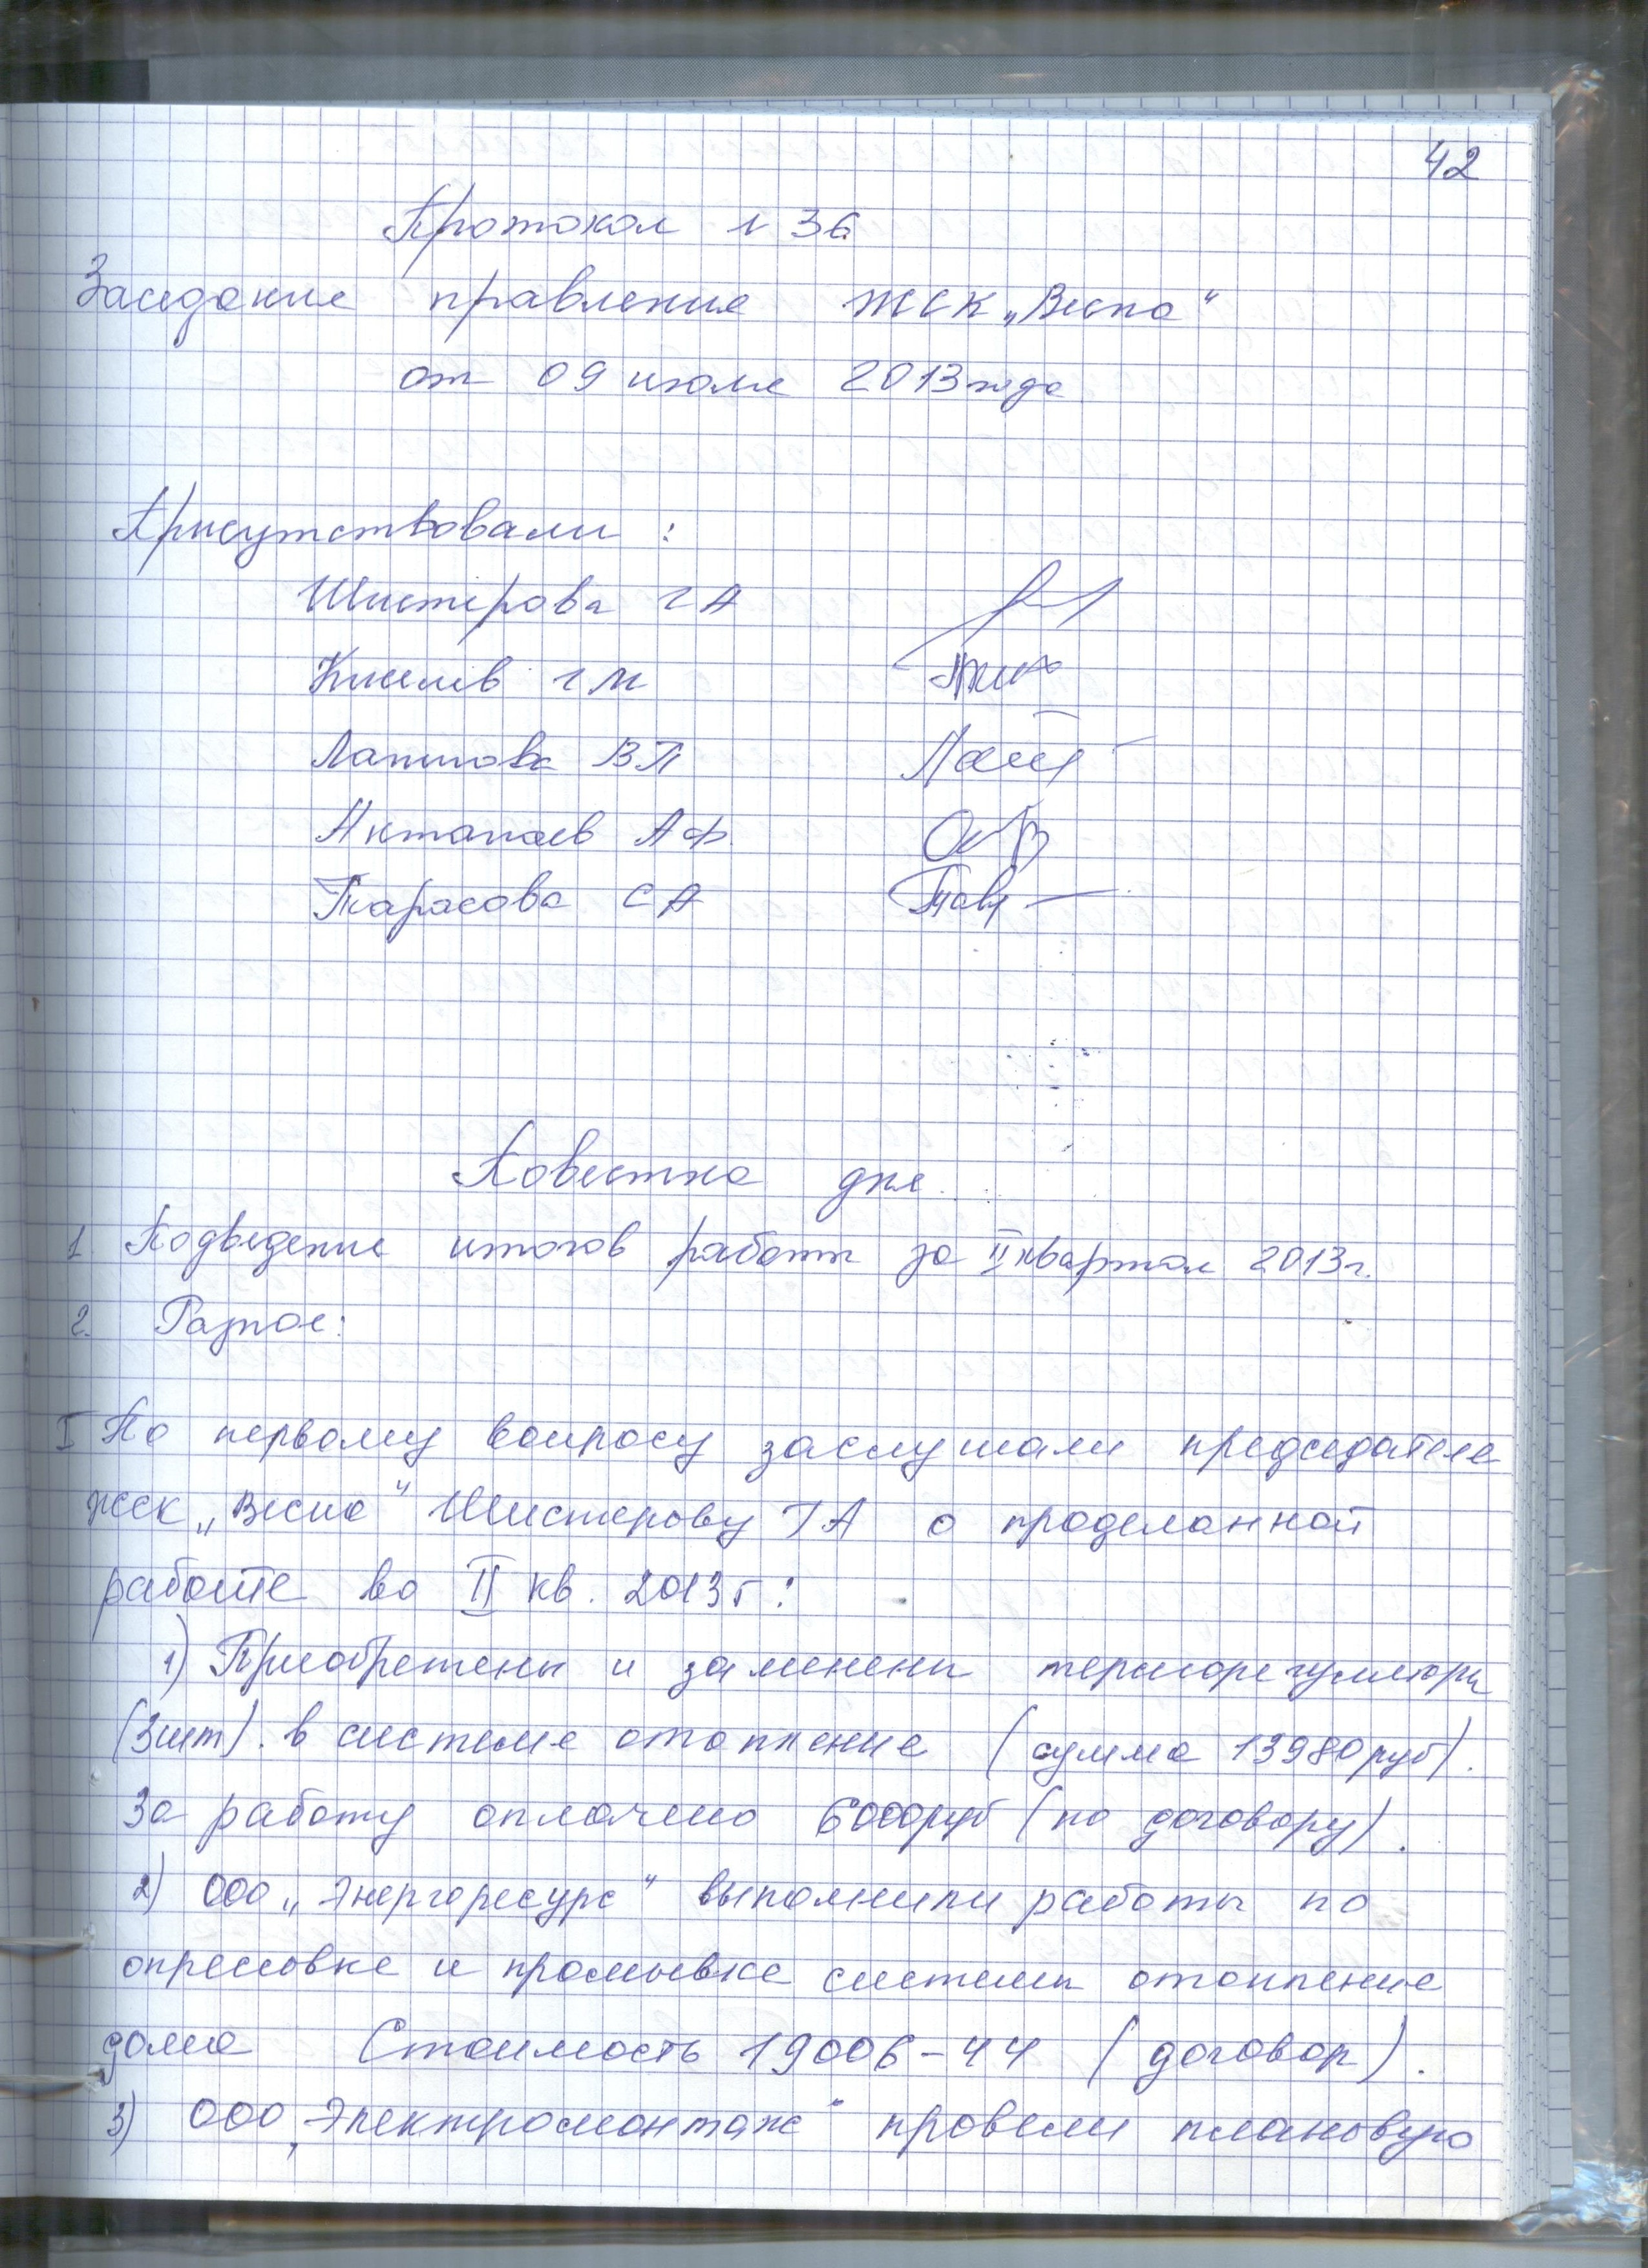 42
Протокол N 36
Заседание правления ЖСК „Весна“
от 09 июля 2013 года
Присутствовали :
Шистерова Г А
Киселев Г М
Лапшова В П
Актапаев А Ф.
Тарасова С А
Повестка дня
1. Подведение итогов работы за II квартал 2013г.
2. Разное:
I По первому вопросу заслушали председателя
жск „Весна“ Шистерову ГА о проделанной
работе во II кв. 2013г:
1) Приобретены и заменены терморегуляторы
(3шт). в системе отопления (сумма 13980 руб).
За работу оплачено 6000руб (по договору).
2) ООО „Энергоресурс“ выполнили работы по
опрессовке и промывке системы отопления
дома Стоимость 19006-44 (договор).
3) ООО „Электромонтаж“ провели плановую